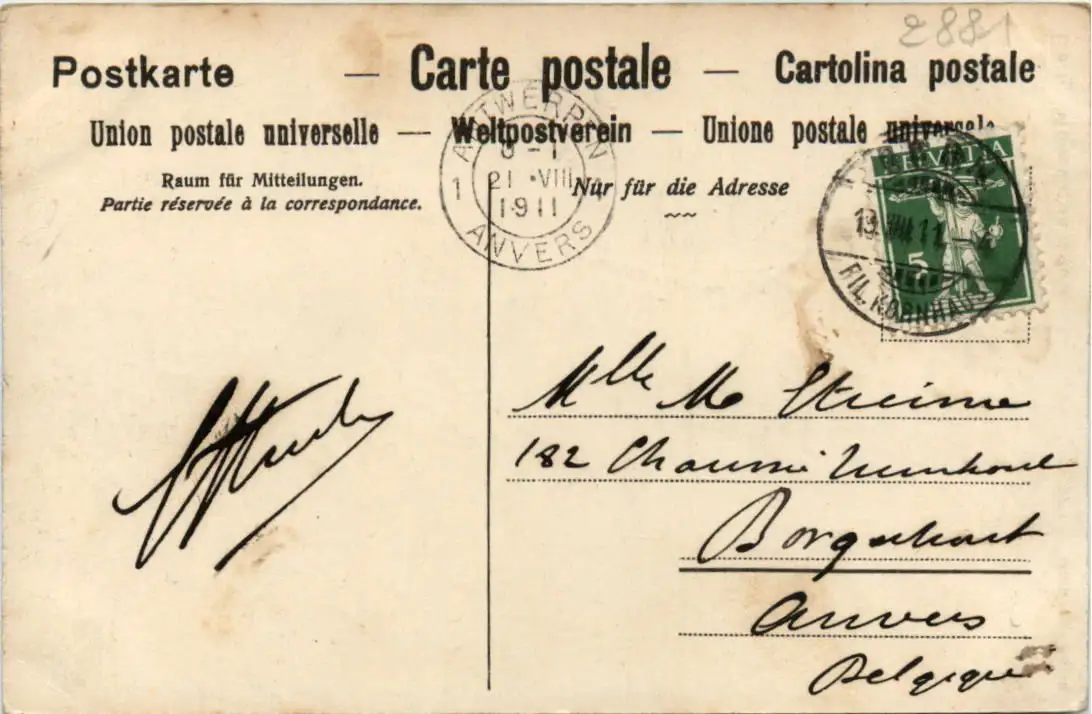 2881
Postkarte — Carte postale — Cartolina postale
Union postale universelle — Weltpostverein — Unione postale universale
Raum für Mitteilungen.
Partie réservée à la correspondance.
Nur für die Adresse
ANTWERPEN
1 21 · VIII 1
1911
ANVERS
HELVETIA
5
13.VIII.11.
FIL. KORNHAUS
Mlle M
182 Chaussée Turnhout
Borgerhout
Anvers
Belgique